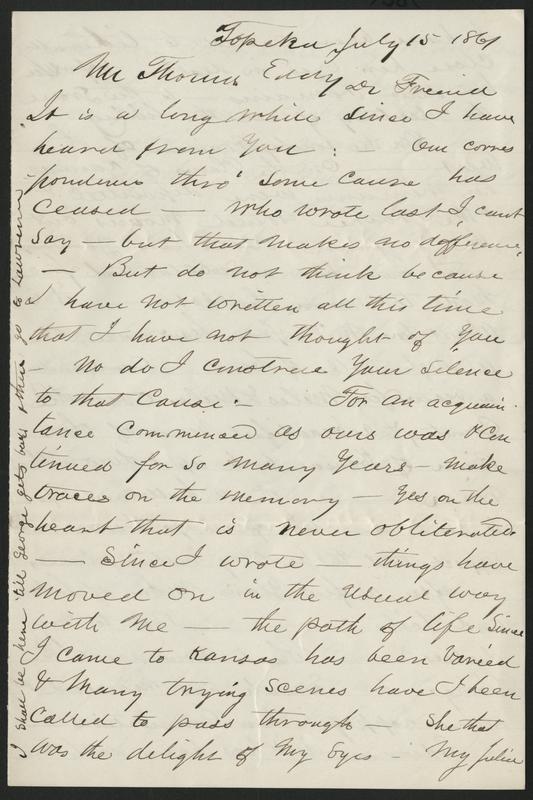 Topeka July 15 1861
Mr Thomas Eddy Dr Freind
It is a long while since I have
heard from You : Our corres
pondence thro' some cause has
Ceased — Who wrote last I cant
say — but that makes no difference,
— But do not think because
I have not written all this time
that I have not thought of you
— No do I construe Your silence
to that Cause. — For an acquain
tance Commenced as ours was & Con
tinued for so many Years — make
traces on the memory — Yes on the
heart that is never obliterated
— Since I wrote — things have
moved on in the usual way
with Me — the path of life since
I came to Kansas has been varied
& Many trying scenes have I been
Called to pass through — She that
was the delight of My Eyes — My
I shall be here 'till George gets back & then go to Lawrence